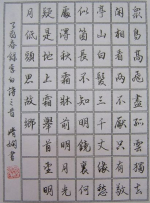 眾鳥高飛盡孤雲獨去
閑相看兩不厭只有敬
亭山白髮三千丈緣愁
似箇長不知明鏡裏何
處得秋霜床前明月光
疑是地上霜舉頭望明
月低頭思故鄉
春錄李白詩三首 書